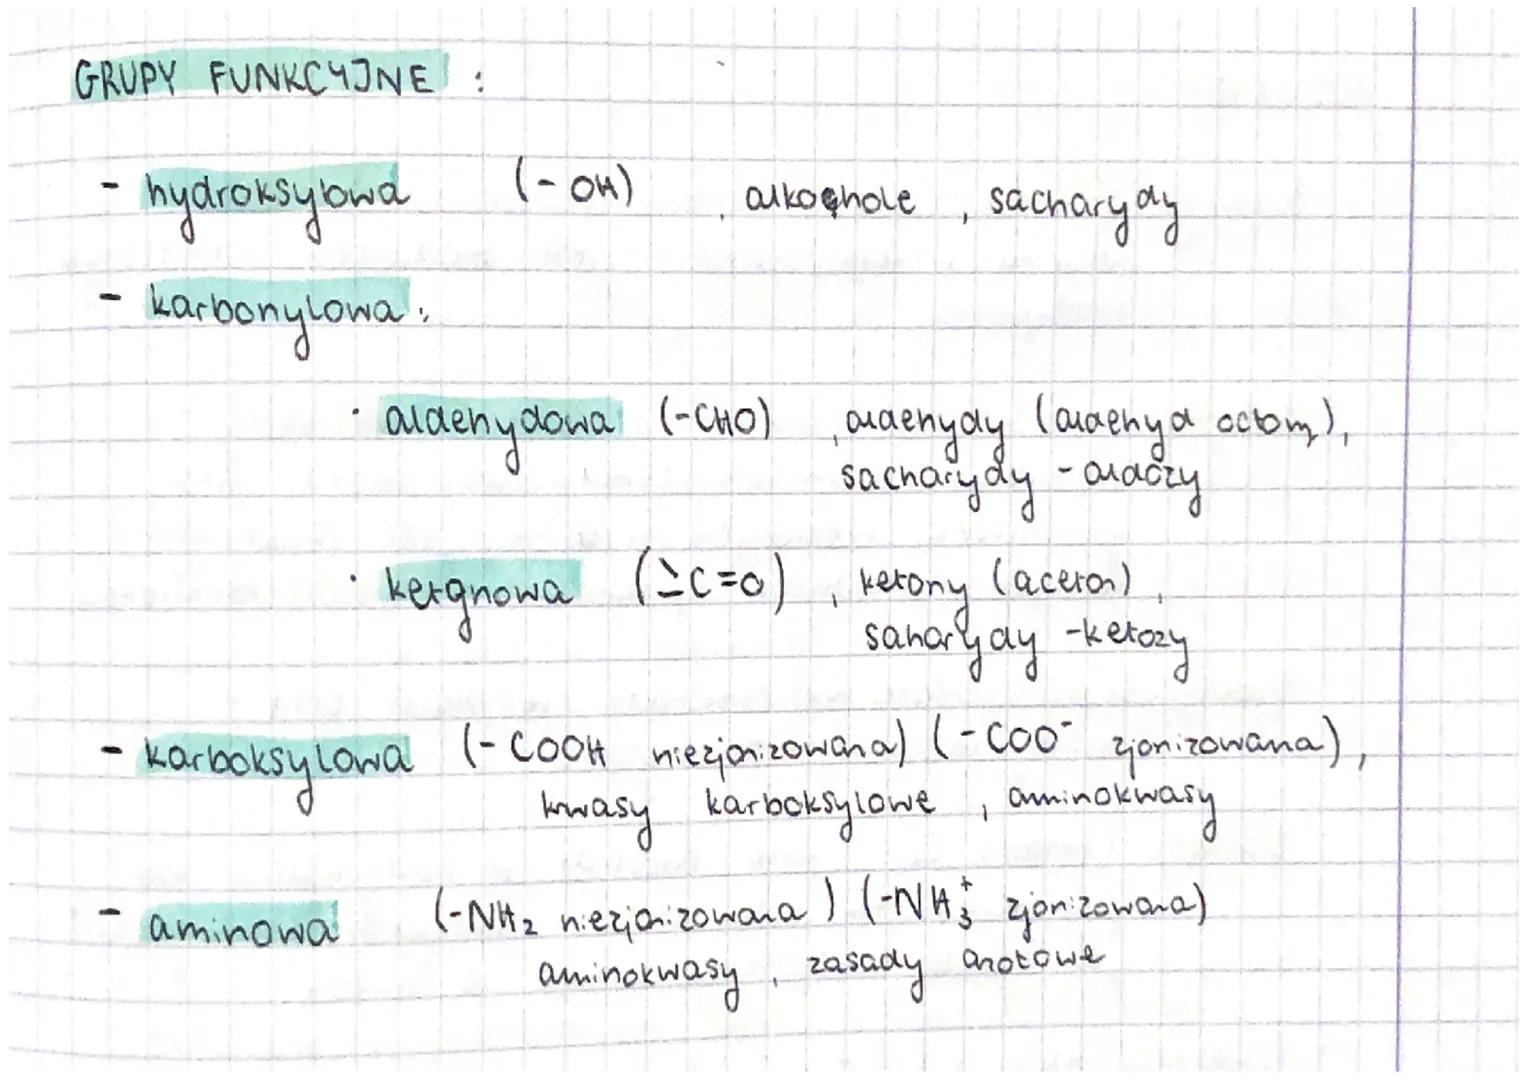 GRUPY FUNKCYJNE :
- hydroksylowa (-OH) , alkohole , sacharydy
- karbonylowa :
· aldehydowa (-CHO) , aldehydy (aldehyd octowy),
sacharydy - aldozy
· ketonowa (>C=O) , ketony (aceton) ,
saharydy - ketozy
- karboksylowa (-COOH niezjonizowana) (-COO⁻ zjonizowana) ,
kwasy karboksylowe , aminokwasy
- aminowa (-NH₂ niezjonizowana ) (-NH₃⁺ zjonizowana)
aminokwasy , zasady azotowe